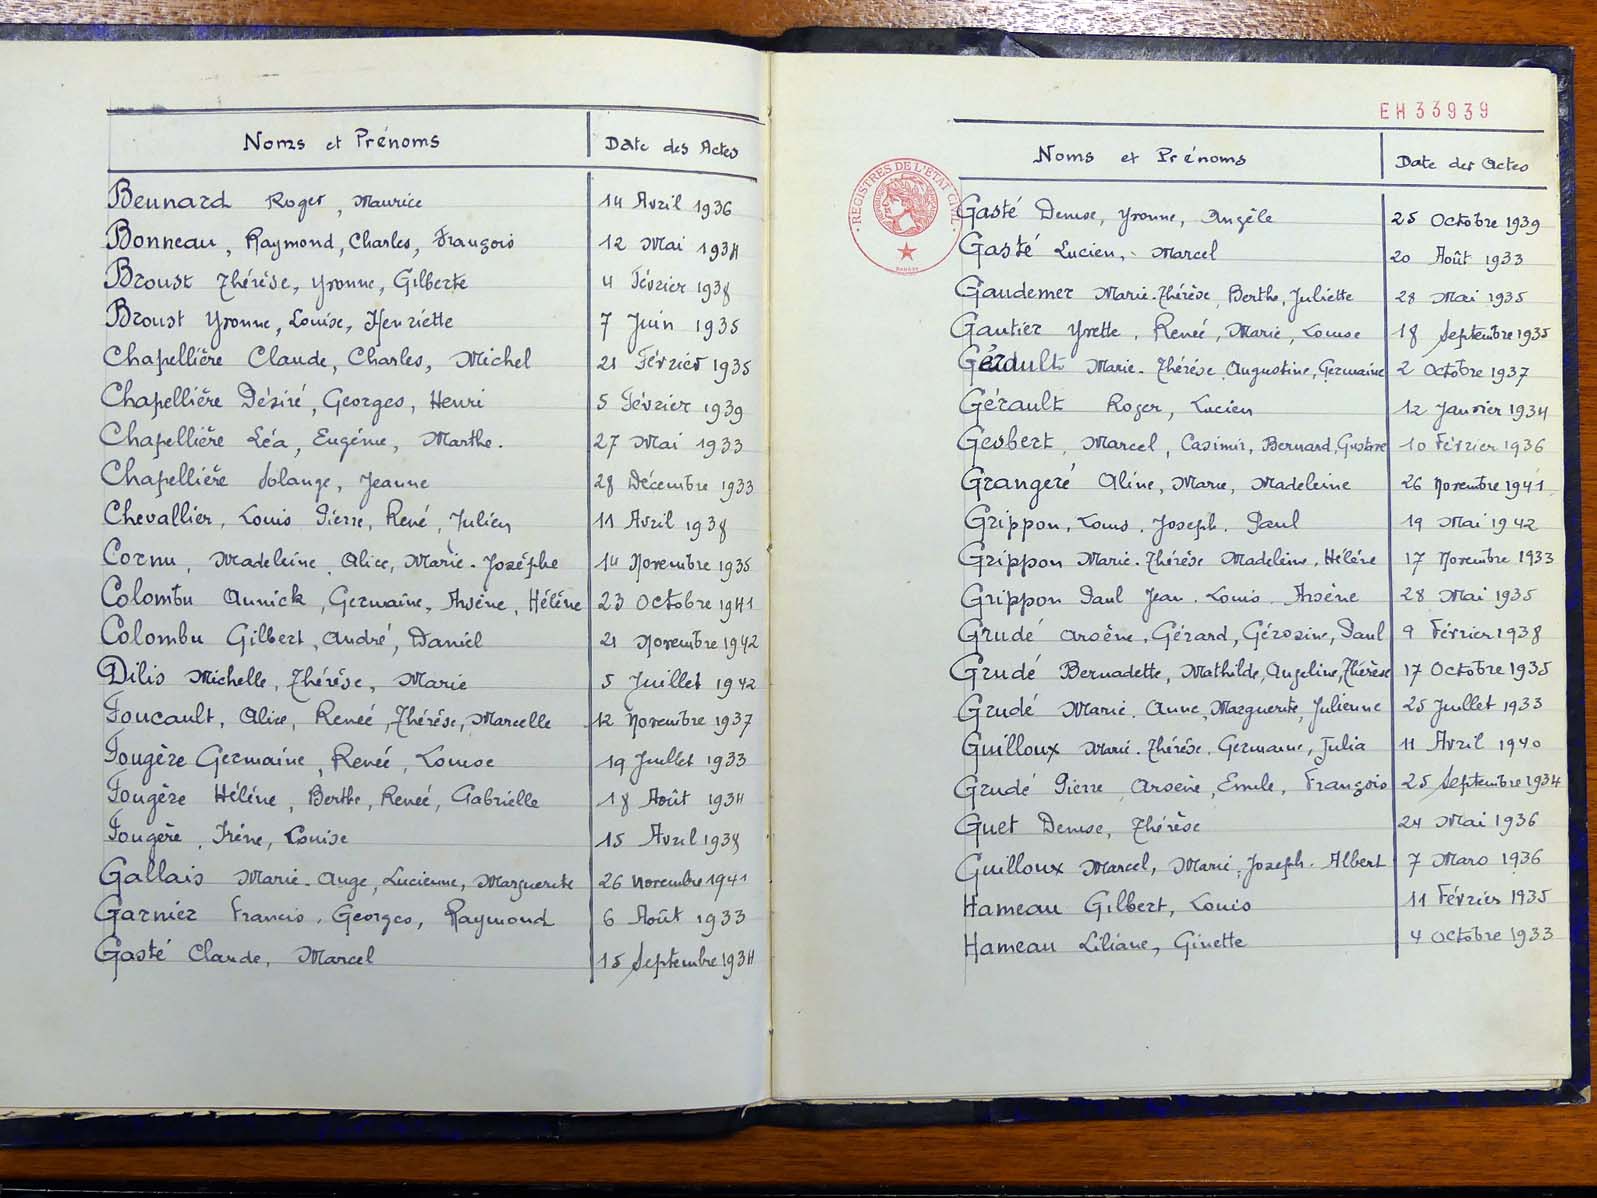 Noms et Prénoms Date des Actes
Beunard Roger, Maurice 14 Avril 1936
Bonneau, Raymond, Charles, François 12 Mai 1934
Broust Thérèse, Yvonne, Gilberte 4 Février 1938
Broust Yvonne, Louise, Henriette 7 Juin 1935
Chapellière Claude, Charles, Michel 21 Février 1935
Chapellière Désiré, Georges, Henri 5 Février 1939
Chapellière Léa, Eugénie, Marthe. 27 Mai 1933
Chapellière Solange, Jeanne 28 Décembre 1933
Chevallier, Louis Pierre, René, Julien 11 Avril 1938
Cornu, Madeleine, Alice, Marie-Josèphe 14 Novembre 1935
Colombu Annick, Germaine, Arsène, Hélène 23 Octobre 1941
Colombu Gilbert, André, Daniel 21 Novembre 1942
Dilis Michelle, Thérèse, Marie 5 Juillet 1942
Foucault, Alice, Renée, Thérèse, Marcelle 12 Novembre 1937
Fougère Germaine, Renée, Louise 19 Juillet 1933
Fougère Hélène, Berthe, Renée, Gabrielle 18 Août 1934
Fougère, Irène, Louise 15 Avril 1938
Gallais Marie-Ange, Lucienne, Marguerite 26 novembre 1941
Garnier Francis, Georges, Raymond 6 Août 1933
Gasté Claude, Marcel 15 Septembre 1934
EH33939
REGISTRES DE L'ETAT CIVIL
Noms et Prénoms Date des Actes
Gasté Denise, Yvonne, Angèle 25 Octobre 1939
Gasté Lucien, Marcel 20 Août 1933
Gaudemer Marie-Thérèse, Berthe, Juliette 28 Mai 1935
Gautier Yvette, Renée, Marie, Louise 18 Septembre 1935
Gérault Marie-Thérèse, Augustine, Germaine 2 Octobre 1937
Gérault Roger, Lucien 12 Janvier 1934
Gesbert, Marcel, Casimir, Bernard, Gustave 10 Février 1936
Grangeré Aline, Marie, Madeleine 26 Novembre 1941
Grippon, Louis, Joseph, Paul 19 Mai 1942
Grippon Marie-Thérèse Madeleine, Hélène 17 Novembre 1933
Grippon Paul Jean, Louis, Arsène 28 Mai 1935
Grudé Arsène, Gérard, Paul 9 Février 1938
Grudé Bernadette, Mathilde, Angeline, Thérèse 17 Octobre 1935
Grudé Marie, Anne, Marguerite, Julienne 25 Juillet 1933
Guilloux Marie-Thérèse, Germaine, Julia 11 Avril 1940
Grudé Pierre, Arsène, Emile, François 25 Septembre 1934
Guet Denise, Thérèse 24 Mai 1936
Guilloux Marcel, Marie, Joseph, Albert 7 Mars 1936
Hameau Gilbert, Louis 11 Février 1935
Hameau Liliane, Ginette 4 Octobre 1933